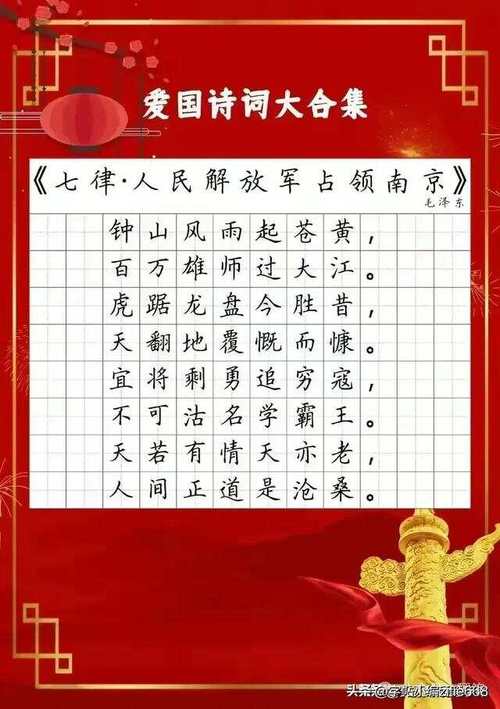 爱国诗词大合集
《七律·人民解放军占领南京》
毛泽东
钟山风雨起苍黄，
百万雄师过大江。
虎踞龙盘今胜昔，
天翻地覆慨而慷。
宜将剩勇追穷寇，
不可沽名学霸王。
天若有情天亦老，
人间正道是沧桑。